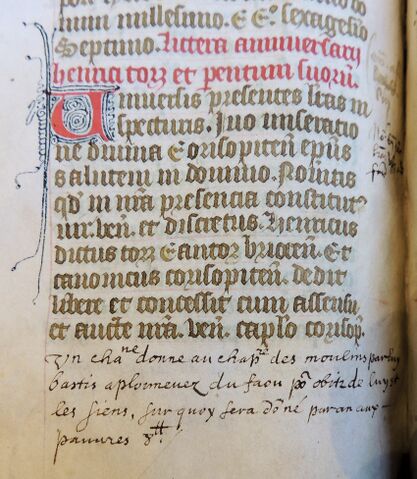 mini millesimo. CC°. sexagesio
Septimo. Littera anniversarij
henrici torz et pentum suoru.
Universis presentes lras in
specturis. Yvo miseratio
ne divina Corisopiten epus
salutem in domino. Noveritis
qd in nra presencia constitut
vir. ven. et discretus. Henricus
dictus torz Cantor briocen. Et
canonicus corisopiten. dedit
libere et concessit cum assensu
et aucte nra. ven. caplo corisop.
Un chane donne au chapre des moulins par luy
bastis a ploumevez du faou po obitz de luy et
les siens, sur quoy sera doné par an aux
pauvres 8lt